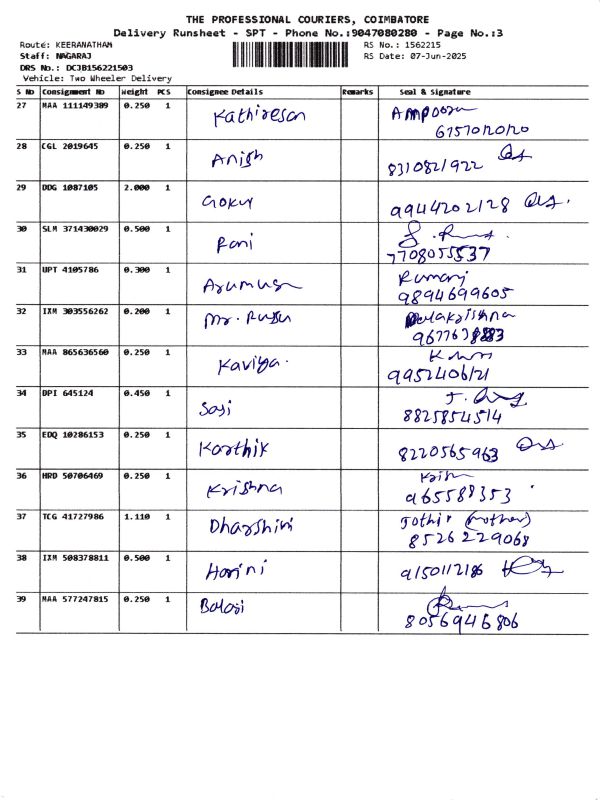 THE PROFESSIONAL COURIERS, COIMBATORE
Delivery Runsheet - SPT - Phone No.:9047080280 - Page No.:3
Route: KEERANATHAM RS No.: 1562215
Staff: NAGARAJ RS Date: 07-Jun-2025
DRS No.: DCJB156221503
Vehicle: Two Wheeler Delivery
S No Consignment No Weight PCS Consignee Details Remarks Seal & Signature
27 MAA 111149389 0.250 1 Kathiresan
28 CGL 2019645 0.250 1 Anish 8310821922
29 DDG 1087105 2.000 1 Gokul 9944202128
30 SLM 371430029 0.500 1 Rani
7708055537
31 UPT 4105786 0.300 1 Arumuga Kumaraj
9894699605
32 IXM 303556262 0.200 1 Mr. Balakrishna
33 MAA 865636560 0.250 1 Kaviya.
9952406121
34 DPI 645124 0.450 1 Sasi
8825854514
35 EDQ 10286153 0.250 1 Karthik 8220565963
36 HRD 50706469 0.250 1 Krishna
9655888353
37 TCG 41727986 1.110 1 Dharshini Jothi (mother)
8526229068
38 IXM 508378811 0.500 1 Harini 9150112186
39 MAA 577247815 0.250 1 Balaji
8056946806